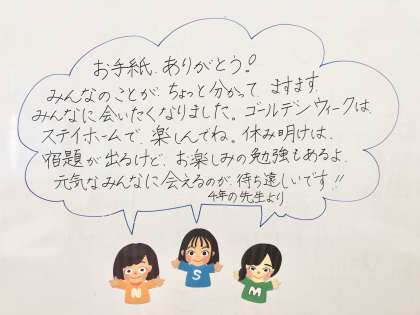 お手紙、ありがとう!
みんなのことが、ちょっと分かって ますます、
みんなに会いたくなりました。ゴールデンウィークは、
ステイホームで、楽しんでね。休み明けは、
宿題が出るけど、お楽しみの勉強もあるよ。
元気なみんなに会えるのが、待ち遠しいです!!
4年の先生より
N
S
M